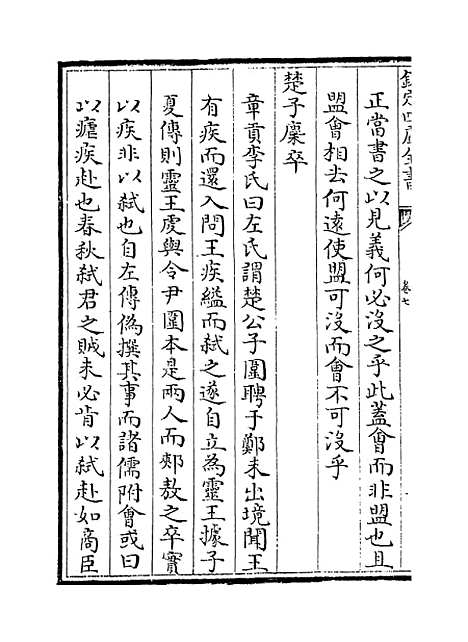 欽定四庫全書
卷七
正當書之以見義何必沒之乎此蓋會而非盟也且
盟會相去何遠使盟可沒而會不可沒乎
楚子麇卒
章貢李氏曰左氏謂楚公子圍聘于鄭未出境聞王
有疾而還入問王疾縊而弒之遂自立為靈王據子
夏傳則靈王虔與令尹圍本是兩人而郟敖之卒實
以疾非以弒也自左傳偽撰其事而諸儒附會或曰
以瘧疾赴也春秋弒君之賊未必肯以弒赴如商臣